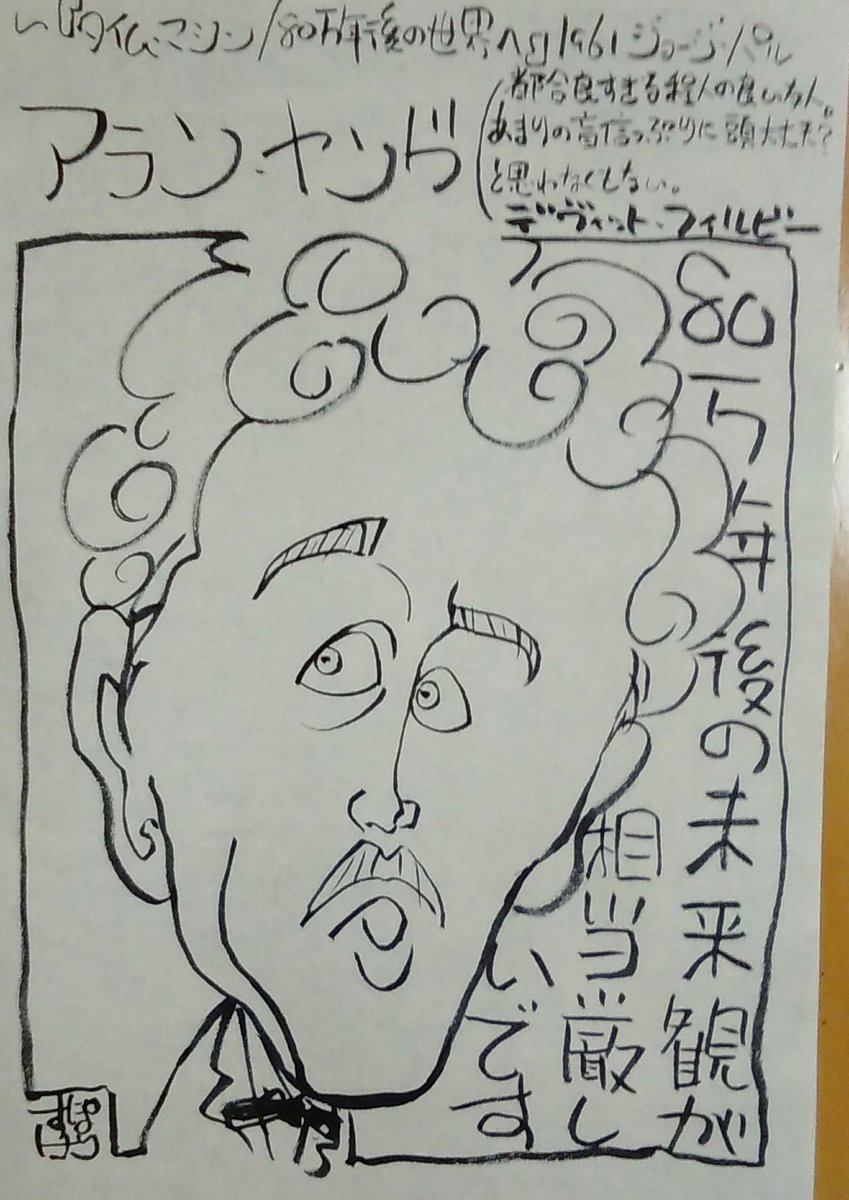 タイム・マシン/80万年後の世界へ』1961ジョージ・パル
アラン・ヤング
(都合良すぎる程人の良い友人。
あまりの盲信っぷりに頭大丈夫?
と思わなくもない。
デヴィット・フィルビー
80万年後の未来観が
相当厳し
いです